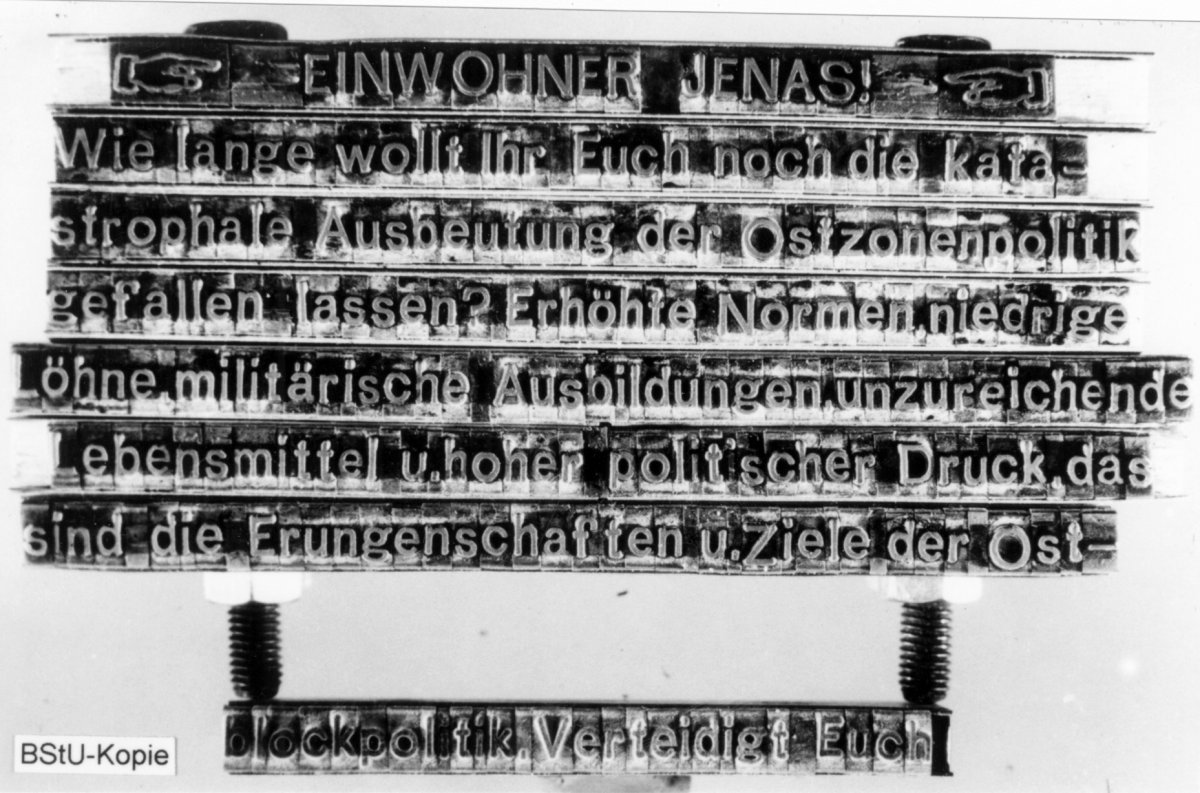 EINWOHNER JENAS!
Wie lange wollt Ihr Euch noch die kata-
strophale Ausbeutung der Ostzonenpolitik
gefallen lassen? Erhöhte Normen,niedrige
Löhne,militärische Ausbildungen,unzureichende
Lebensmittel u.hoher polit'scher Druck,das
sind die Erungenschaften u.Ziele der Ost-
blockpolitik.Verteidigt Euch
BStU-Kopie